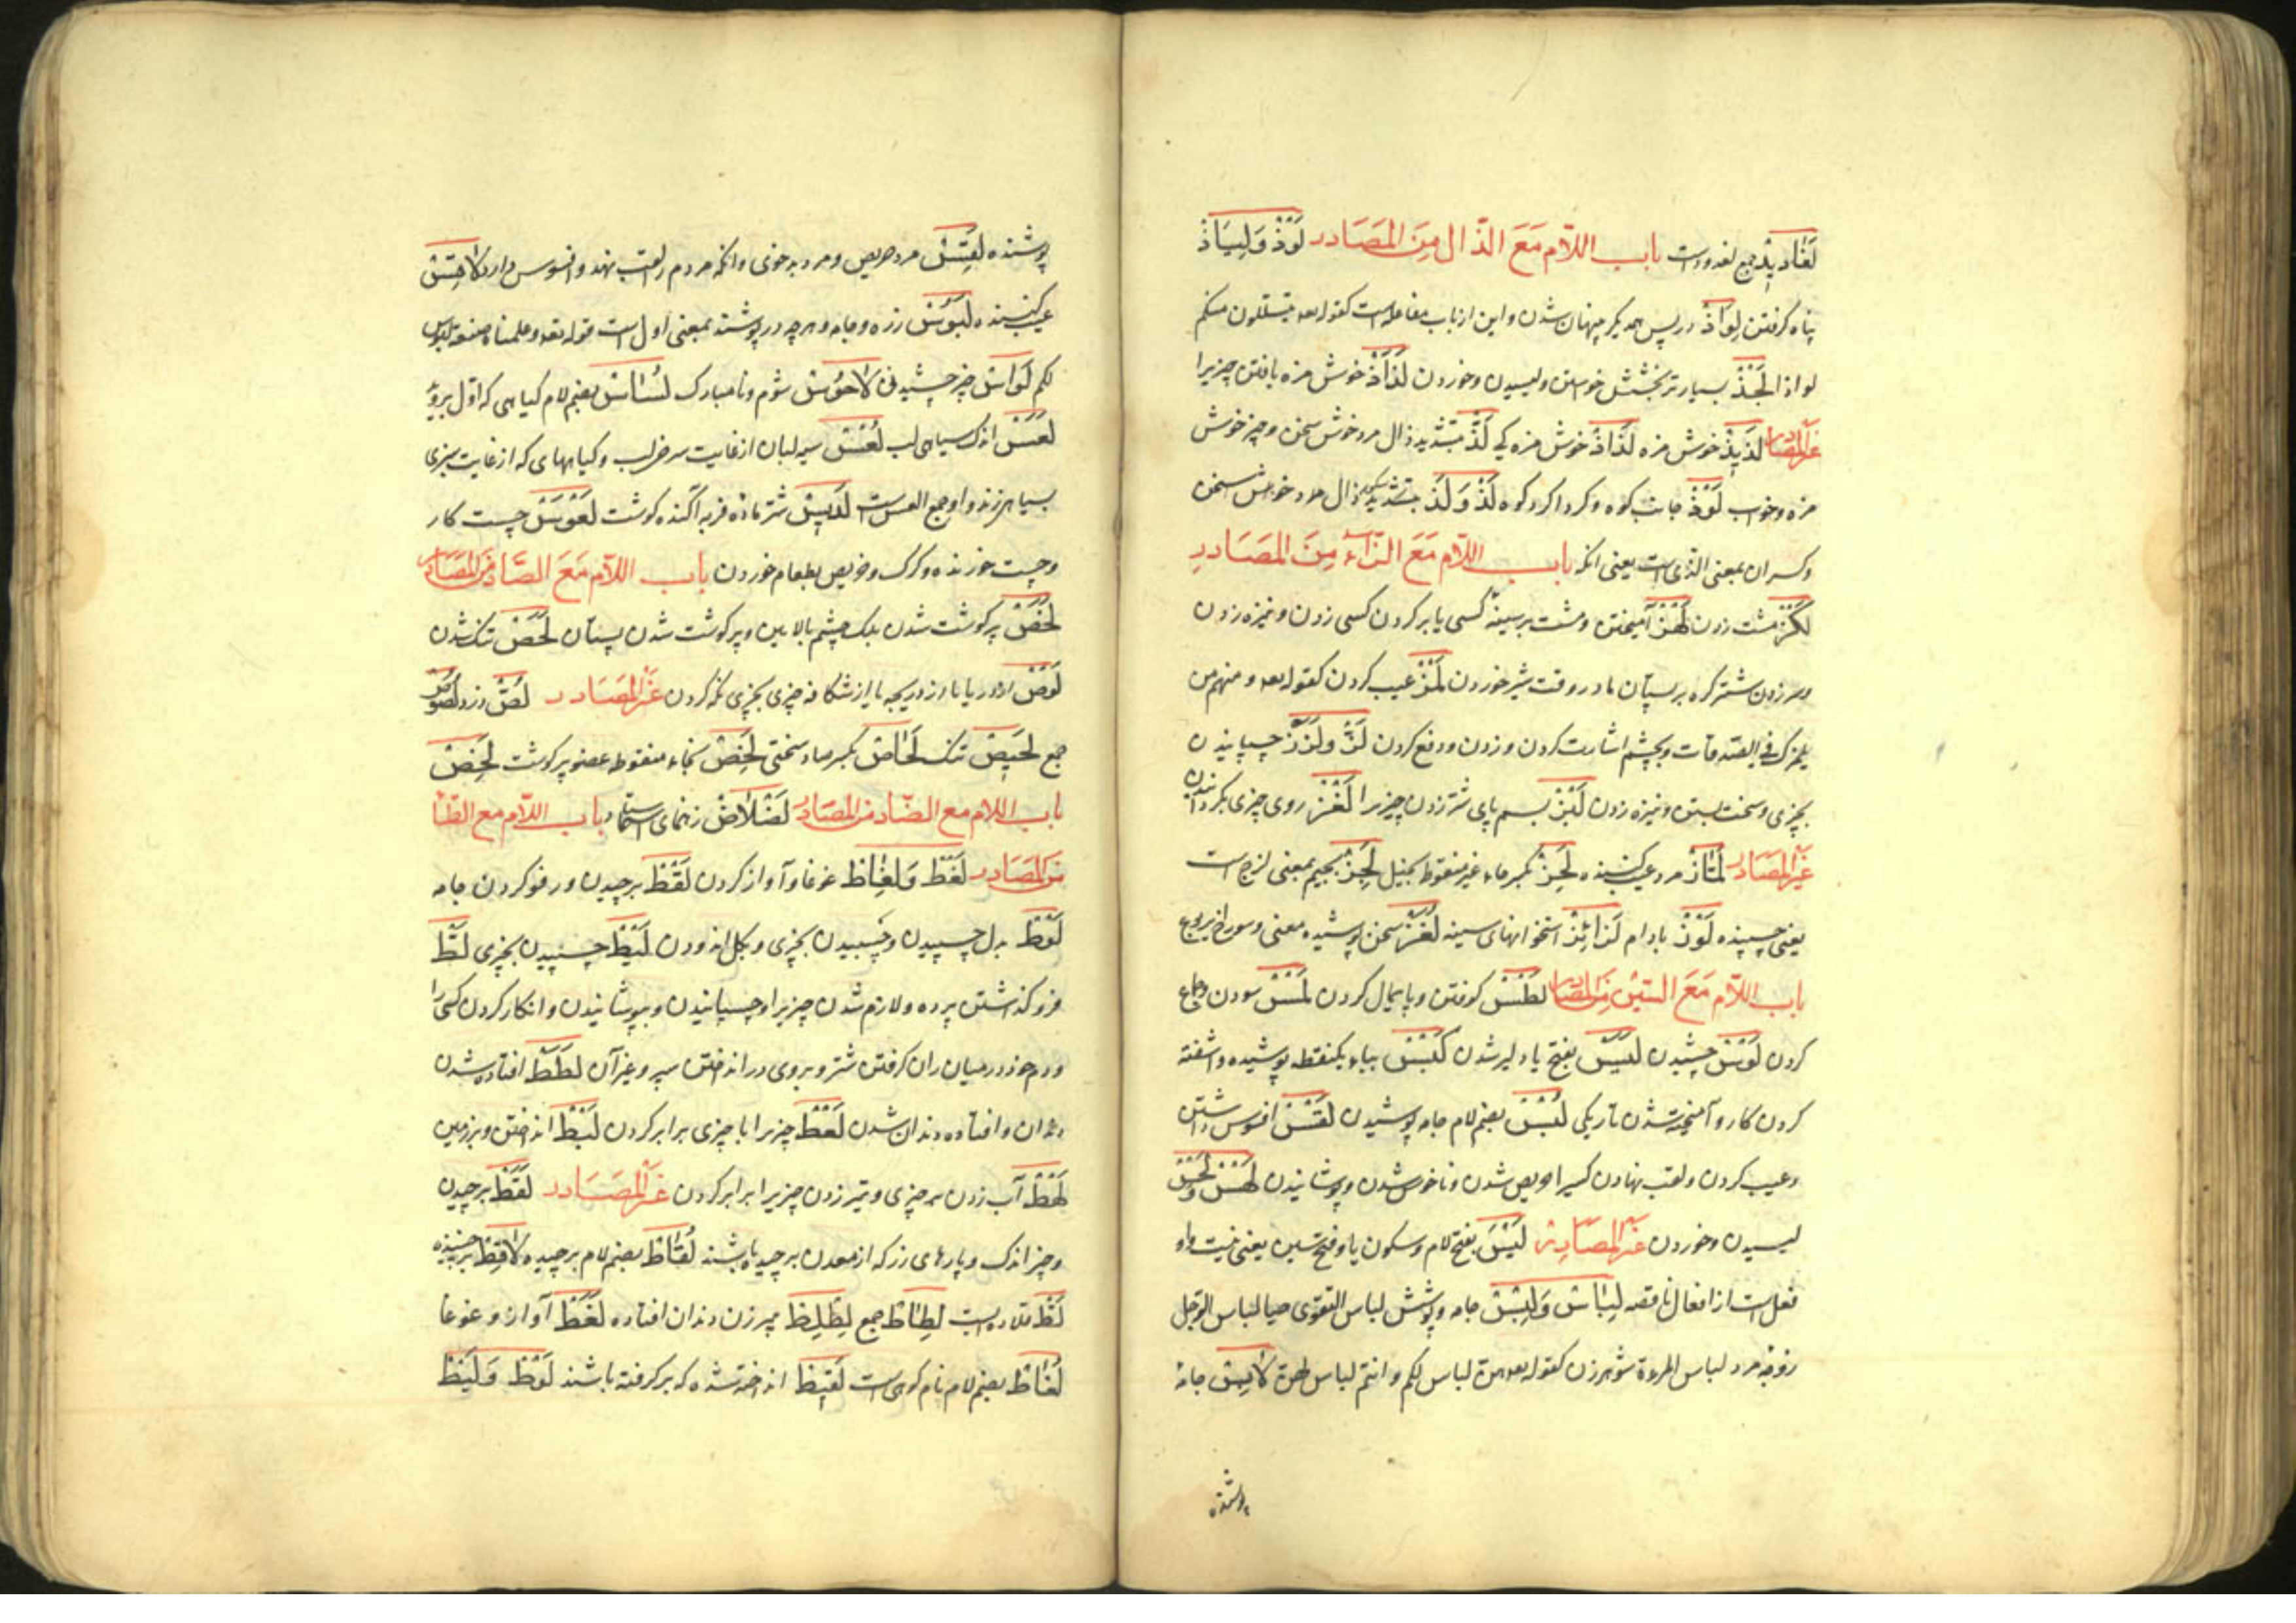 لَغَادِیدْ جمع لغدود است باب اللّام مَعَ الذّال مِنَ المَصَادر لَوْذْ وَ لِیَاذْ
پناه گرفتن لِوَاذْ در پس همدیگر پنهان شدن و این از باب مفاعله است کقوله یتسللون منکم
لواذا لَجْذْ بسیار تر بخشش خواستن و لیسیدن و خوردن لَذَاذْ خوش مزه یافتن چیزیرا
غیر المصادر لَذِیذْ خوش مزه لَذَاذْ خوش مزه کی لَذّ بتشدید ذال مرد خوش سخن و چیز خوش
مزه و خواب لَوْذْ جانب کوه و کرداکرد کوه لَذْ وَ لَذِ ذال خوش سخن
و کسر آن بمعنی الذی است یعنی آنکه باب اللّام مَعَ الزّاء مِنَ المَصَادر
لَکْزْ مشت زدن لَهْزْ آمیختن و مشت بر سینه کسی یا بر کردن کسی زدن و نیزه زدن
و سر زدن شتر کره بر پستان مادر وقت شیر خوردن لَمْزْ عیب کردن کقوله و منهم من
یلمزک فی الصدقات و بچشم اشارت کردن و زدن و دفع کردن لَزّ و لَزَزْ چسپانیدن
بچیزی و سخت بستن و نیزه زدن لَبْزْ بسم پای شتر زدن چیزیرا لَغْزْ روی چیزی بکردانیدن
غیر المصادر لَمَّازْ مرد عیب کننده لَحِزْ بکسر حاء غیر منقوط بخیل لَجِزْ بجیم بمعنی لزج است
یعنی چسپنده لَوْزْ بادام لَزَائِزْ استخوانهای سینه لُغَزْ سخن پوشیده معنی و سوراخ یربوع
باب اللّام مَعَ السّین مِنَ المصادر لَطْسْ کوفتن و پایمال کردن لَمْسْ سودن و جماع
کردن لَوْسْ چشیدن لَیَسْ بفتح یا دلیر شدن لَبْسْ بباء یکنقطه پوشیده و آشفته
کردن کار و آمیخته شدن تاریکی لُبْسْ بضم لام جامه پوشیدن لَقْسْ افسوس داشتن
و عیب کردن و لقب نهادن کسیرا و حریص شدن و ناخوش شدن و پوشانیدن لَهْسْ و لَحْسْ
لیسیدن و خوردن غیر المصادر لَیْسَ بفتح لام و سکون یا و فتح سین یعنی نیست و او
فعل است از افعال ناقصه لِبَاسْ وَ لِبْسْ جامه و پوشش لباس التقوی حیا لباس الرجل
زوجه مرد لباس المرءة شوهر زن کقوله هن لباس لکم و انتم لباس لهن لَابِسْ جامه
پوشنده
پوشنده لَقِسْ مرد حریص و مرد بدخوی و آنکه مردم را لقب نهد و افسوس دارد لَاحِسْ
عیب کننده لَبُوسْ زره و جامه و هر چه در پوشند بمعنی اول است قوله و علمناه صنعة لبوس
لکم لَوَاسْ چیز چشیدنی لَاحُوسْ شوم و نامبارک لُسَاسْ بضم لام کیاهی که اول بروید
لَعَسْ اندک سیاهی لب لُعْسْ سیه لبان از غایت سرخی لب و کیاههای که از غایت سبزی
بسیاهی زند و او جمع العس است لَدِیسْ شتر ماده فربه آکنده کوشت لَعْوَسْ چست کار
و چست خورنده و کرک و حریص بطعام خوردن باب اللّام مَعَ الصّاد مِنَ المَصَادر
لَخَصْ پر کوشت شدن پلک چشم بالایین و پر کوشت شدن پستان لَحَصْ تنک شدن
لَوْصْ از در یا از دریچه یا از شکافه چیزی بچیزی نکه کردن غیر المَصَادر لِصّ دزد لُصُوصْ
جمع لَحِیصْ تنک لَحَاصْ بکسر صاد سختی لَخِصْ بخاء منقوط عضو پر کوشت لَخِصْ
باب اللام مع الضّاد من المصادر لَضْلَاضْ رهنمای استاد باب اللّام مع الطّاء
مِنَ المَصَادر لَغْطْ وَ لِغَاطْ غوغا و آواز کردن لَقْطْ برچیدن و رفو کردن جامه
لَوْطْ بدل چسپیدن و چسپیدن بچیزی و بکل اندودن لَیْطْ چسپیدن بچیزی لَطّ
فرو کذاشتن پرده و لازم شدن چیزیرا و چسپانیدن و بپوشانیدن و انکار کردن کسی را
و دم خود در میان ران کرفتن شتر و بروی در انداختن سپر و غیر آن لَطَطْ افتاده شدن
دندان و افتاده دندان شدن لَعْطْ چیزیرا با چیزی برابر کردن لَبْطْ انداختن و بر زمین
لَهْطْ آب زدن بر چیزی و تیر زدن چیزیرا برابر کردن غیر المَصَادر لَقَطْ برچیدن
و چیز اندک و پارهای زر که از معدن برچیده باشند لُقَاطْ بضم لام برچیده لَاقِطْ برچیننده
لَطّ قلاده است لِطَاطْ جمع لِطْلِطْ پیر زن دندان افتاده لَغَطْ آواز و غوغا
لُغَاطْ بضم لام نام کوهی است لَقِیطْ انداخته شده که بر کرفته باشند لَوْطْ وَ لَیْطْ